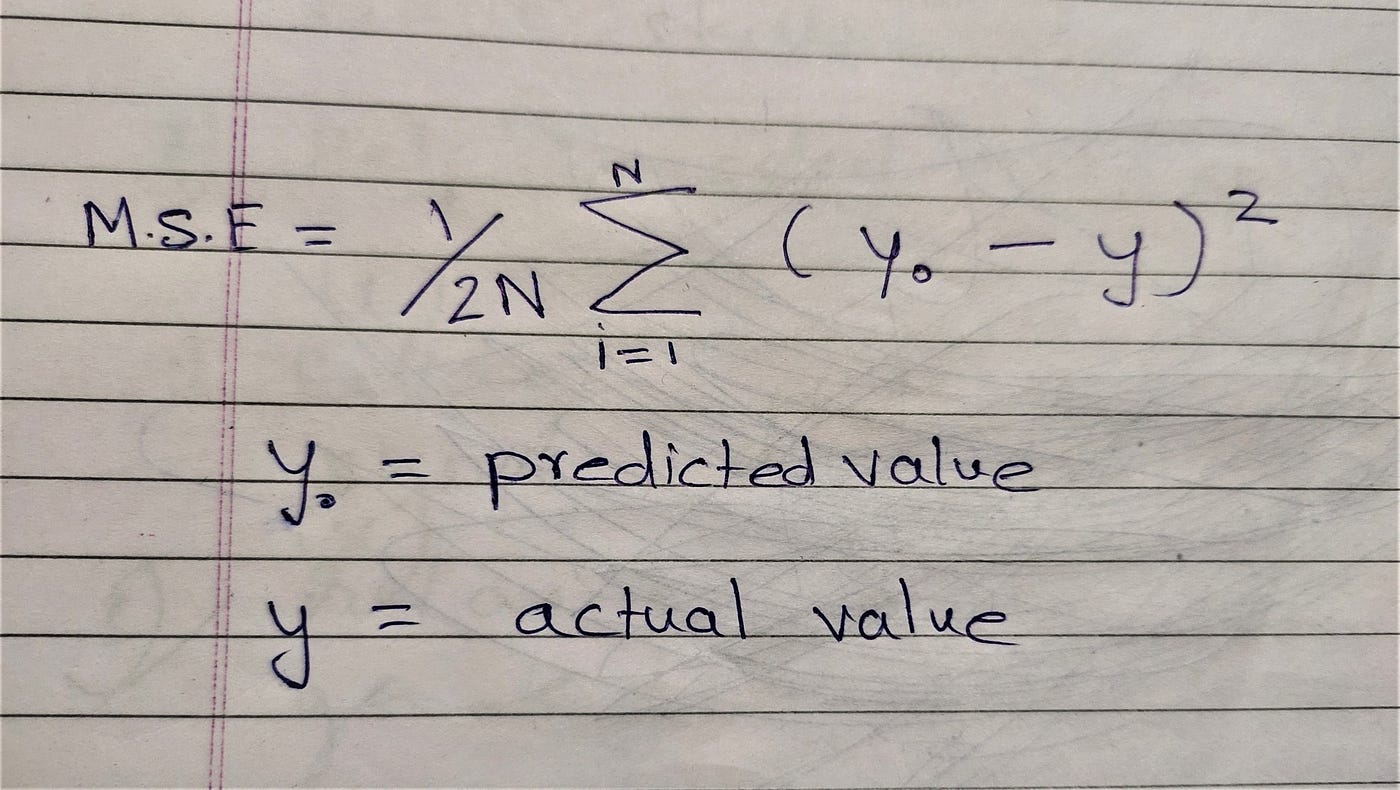 M.S.E = 1/2N N∑i=1 (y₀ - y)²
y₀ = predicted value
y = actual value